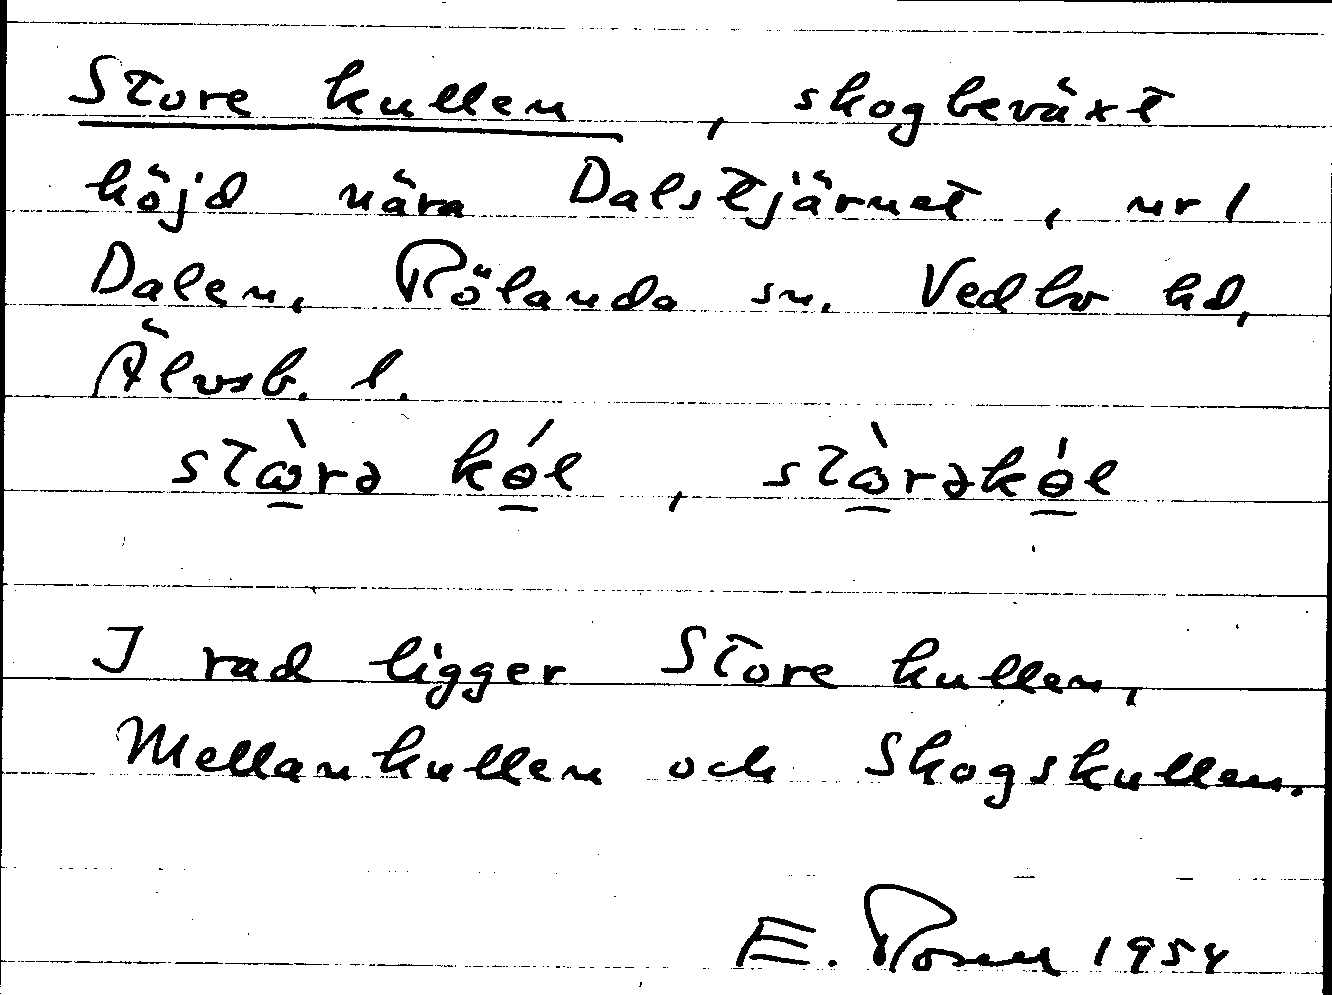 Store kullen, skogbeväxt
höjd nära Dalstjärnet, nr 1
Dalen, Rölanda sn. Vedbo hd,
Älvsb. l.
stὼ̲rə kɵ̲́l, stὼ̲rəkɵ̲́l
I rad ligger Store kullen,
Mellankullen och Skogskullen.
E. Rosell 1954